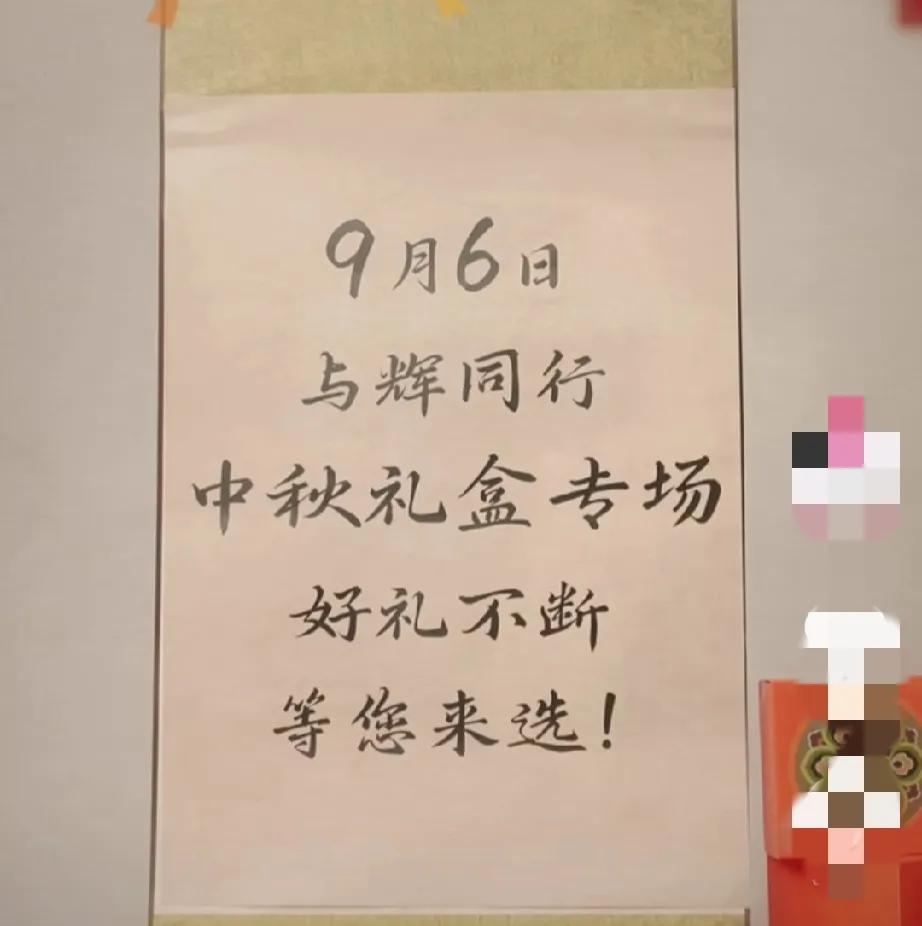 9月6日
与辉同行
中秋礼盒专场
好礼不断
等您来选！